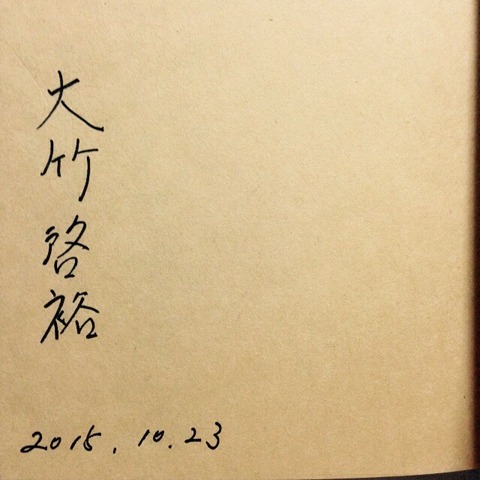 大竹啓裕
2015.10.23